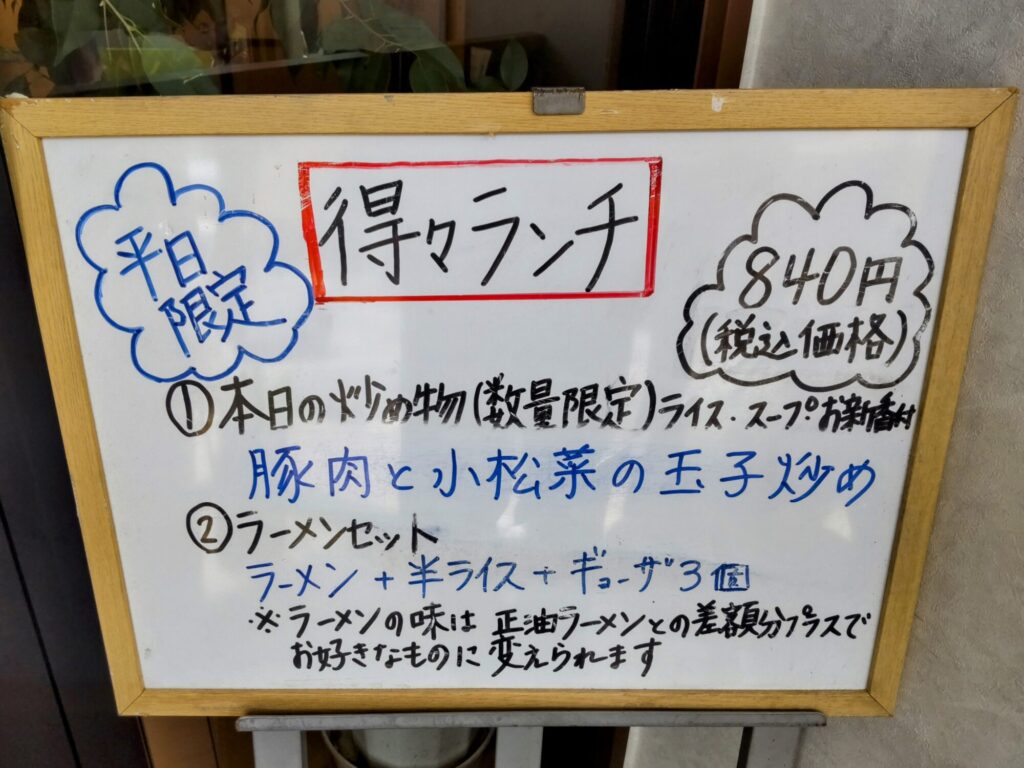 平日
限定
得々ランチ
840円
(税込価格)
①本日の炒め物(数量限定)ライス・スープお新香付
豚肉と小松菜の玉子炒め
②ラーメンセット
ラーメン+半ライス+ギョーザ3個
※ラーメンの味は正油ラーメンとの差額分プラスで
お好きなものに変えられます